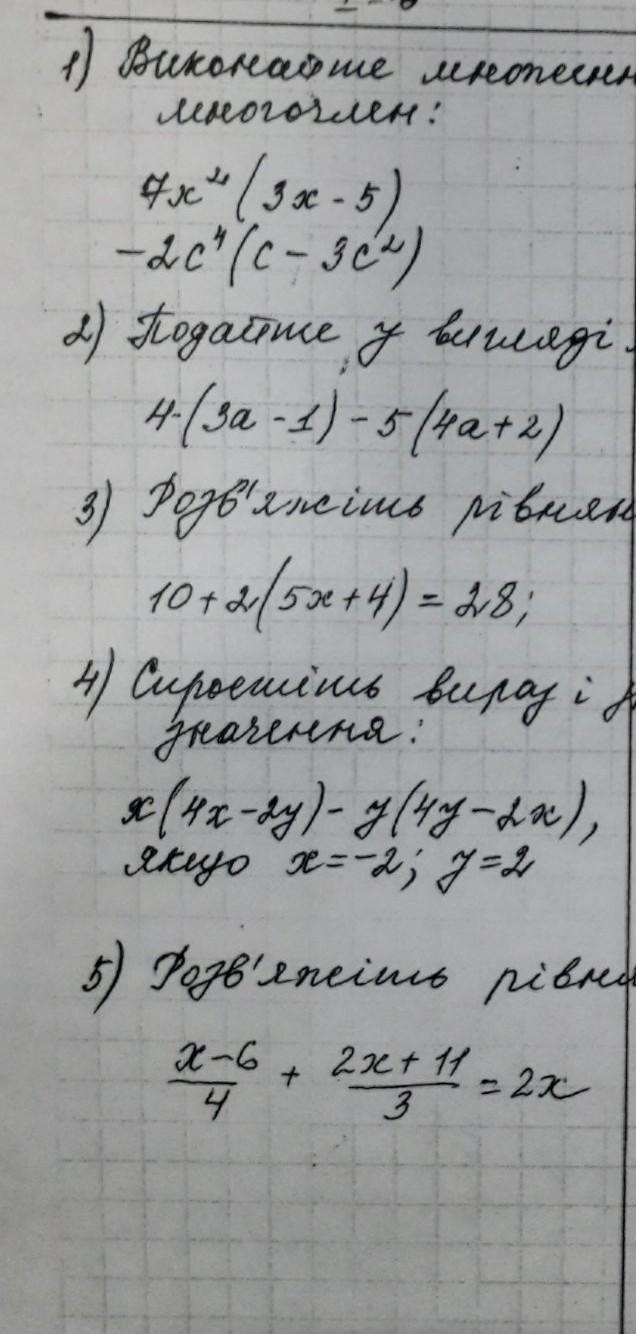 1) Виконайте множенн
многочлен:
7x² (3x - 5)
-2c⁴ (c - 3c²)
2) Подайте у вигляді
4·(3a - 1) - 5 (4a + 2)
3) Розв'яжіть рівнян
10 + 2(5x + 4) = 28;
4) Спростіть вираз і з
значення:
x(4x - 2y) - y(4y - 2x),
якщо x = -2; y = 2
5) Розв'яжіть рівня
x-6/4 + 2x+11/3 = 2x